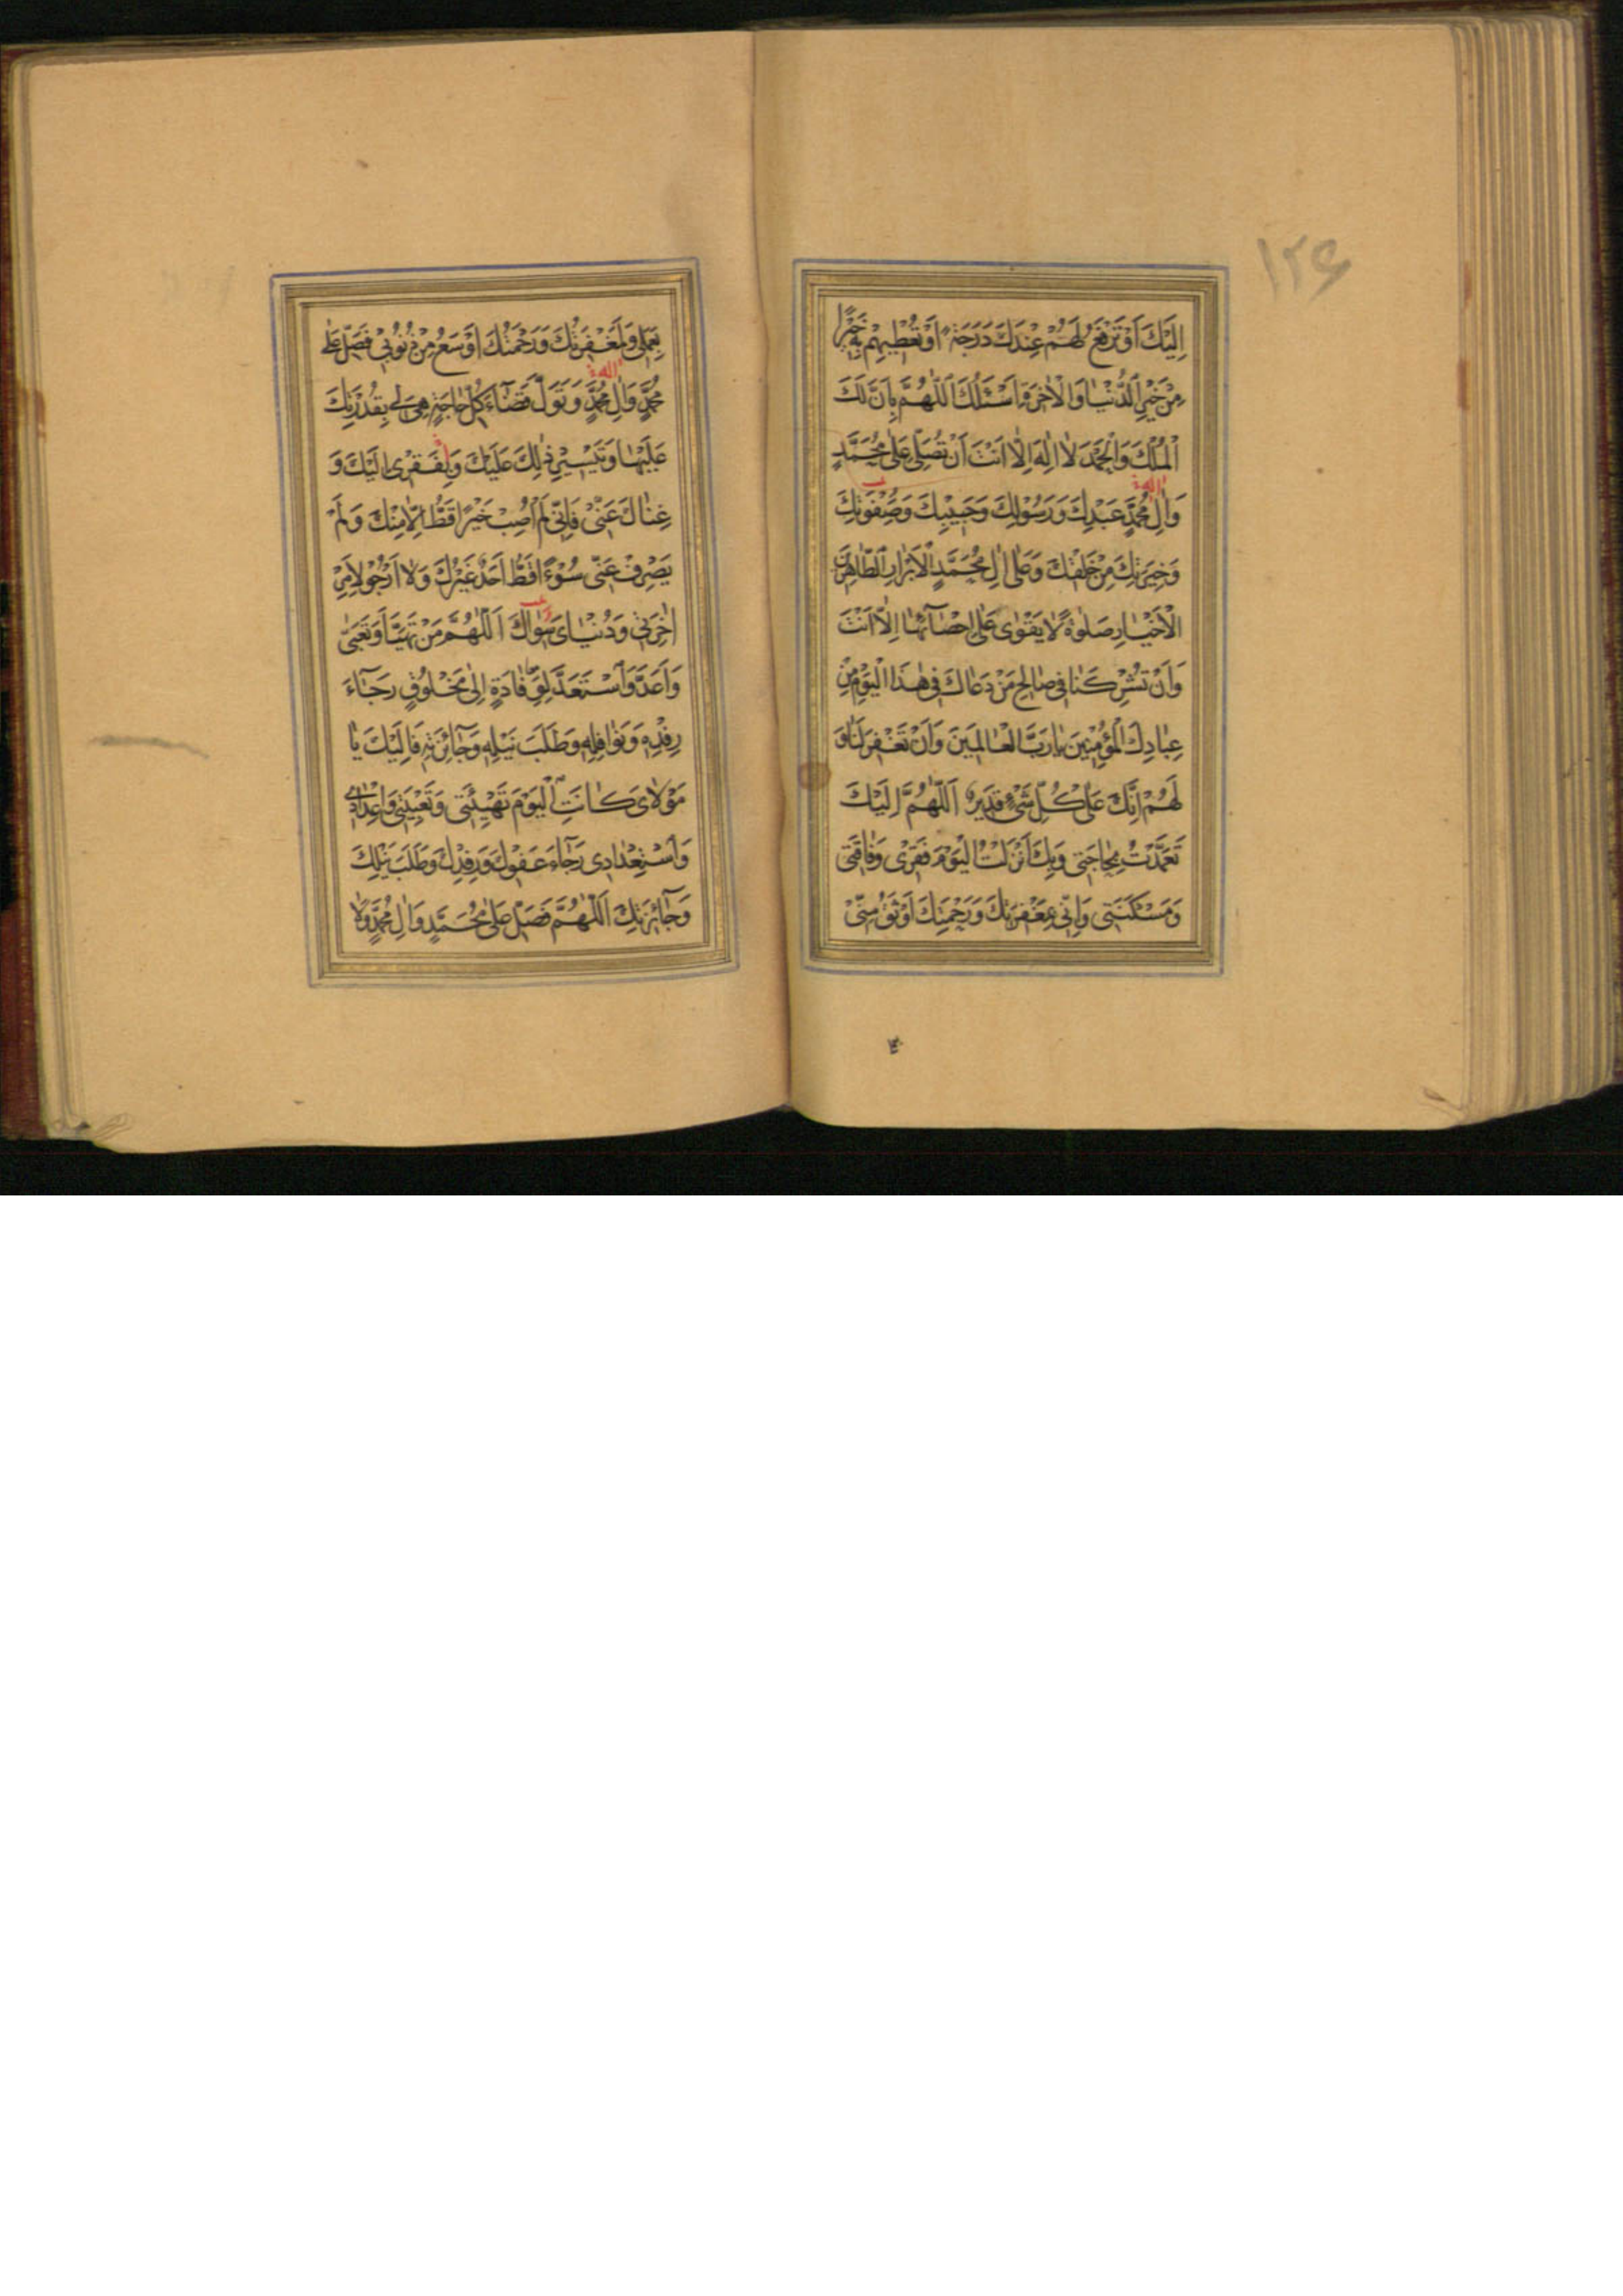 ١٢٦
اِلَيْكَ اَوْ تَرْفَعُ لَهُمْ عِنْدَكَ دَرَجَةً اَوْ تُعْطِيهِمْ بِهِ خَيْرًا
مِنْ خَيْرِ الدُّنْيَا وَالْاٰخِرَةِ اَسْئَلُكَ اللّٰهُمَّ بِاَنَّ لَكَ
الْمُلْكَ وَالْحَمْدَ لَا اِلٰهَ اِلَّا اَنْتَ اَنْ تُصَلِّىَ عَلٰى مُحَمَّدٍ
وَاٰلِ مُحَمَّدٍ عَبْدِكَ وَرَسُولِكَ وَحَبِيبِكَ وَصِفْوَتِكَ
وَخِيَرَتِكَ مِنْ خَلْقِكَ وَعَلٰى اٰلِ مُحَمَّدٍ الْاَبْرَارِ الطَّاهِرِينَ
الْاَخْيَارِ صَلٰوةً لَا يَقْوٰى عَلٰى اِحْصَآئِهَا اِلَّا اَنْتَ
وَاَنْ تُشْرِكَنَا فِى صَالِحِ مَنْ دَعَاكَ فِى هٰذَا الْيَوْمِ مِنْ
عِبَادِكَ الْمُؤْمِنِينَ يَا رَبَّ الْعَالَمِينَ وَاَنْ تَغْفِرَ لَنَا وَ
لَهُمْ اِنَّكَ عَلٰى كُلِّ شَىْءٍ قَدِيرٌ اَللّٰهُمَّ اِلَيْكَ
تَعَمَّدْتُ بِحَاجَتِى وَبِكَ اَنْزَلْتُ الْيَوْمَ فَقْرِى وَفَاقَتِى
وَمَسْكَنَتِى وَاِنِّى بِمَغْفِرَتِكَ وَرَحْمَتِكَ اَوْثَقُ مِنِّى
بِعَمَلِى وَلَمَغْفِرَتُكَ وَرَحْمَتُكَ اَوْسَعُ مِنْ ذُنُوبِى فَصَلِّ عَلٰى
مُحَمَّدٍ وَاٰلِ مُحَمَّدٍ وَتَوَلَّ قَضَآءَ كُلِّ حَاجَةٍ هِىَ لِى بِقُدْرَتِكَ
عَلَيْهَا وَتَيْسِيرِ ذٰلِكَ عَلَيْكَ وَبِفَقْرِى اِلَيْكَ وَ
غِنَاكَ عَنِّى فَاِنِّى لَمْ اُصِبْ خَيْرًا قَطُّ اِلَّا مِنْكَ وَلَمْ
يَصْرِفْ عَنِّى سُوْءًا قَطُّ اَحَدٌ غَيْرُكَ وَلَا اَرْجُو لِاَمْرِ
اٰخِرَتِى وَدُنْيَاىَ سِوَاكَ اَللّٰهُمَّ مَنْ تَهَيَّاَ وَتَعَبَّى
وَاَعَدَّ وَاسْتَعَدَّ لِوِفَادَةٍ اِلٰى مَخْلُوقٍ رَجَآءَ
رِفْدِهِ وَنَوَافِلِهِ وَطَلَبَ نَيْلِهِ وَجَآئِزَتِهِ فَاِلَيْكَ يَا
مَوْلَاىَ كَانَتِ الْيَوْمَ تَهْيِئَتِى وَتَعْبِيَتِى وَاِعْدَادِى
وَاسْتِعْدَادِى رَجَآءَ عَفْوِكَ وَرِفْدِكَ وَطَلَبَ نَيْلِكَ
وَجَآئِزَتِكَ اَللّٰهُمَّ فَصَلِّ عَلٰى مُحَمَّدٍ وَاٰلِ مُحَمَّدٍ وَلَا